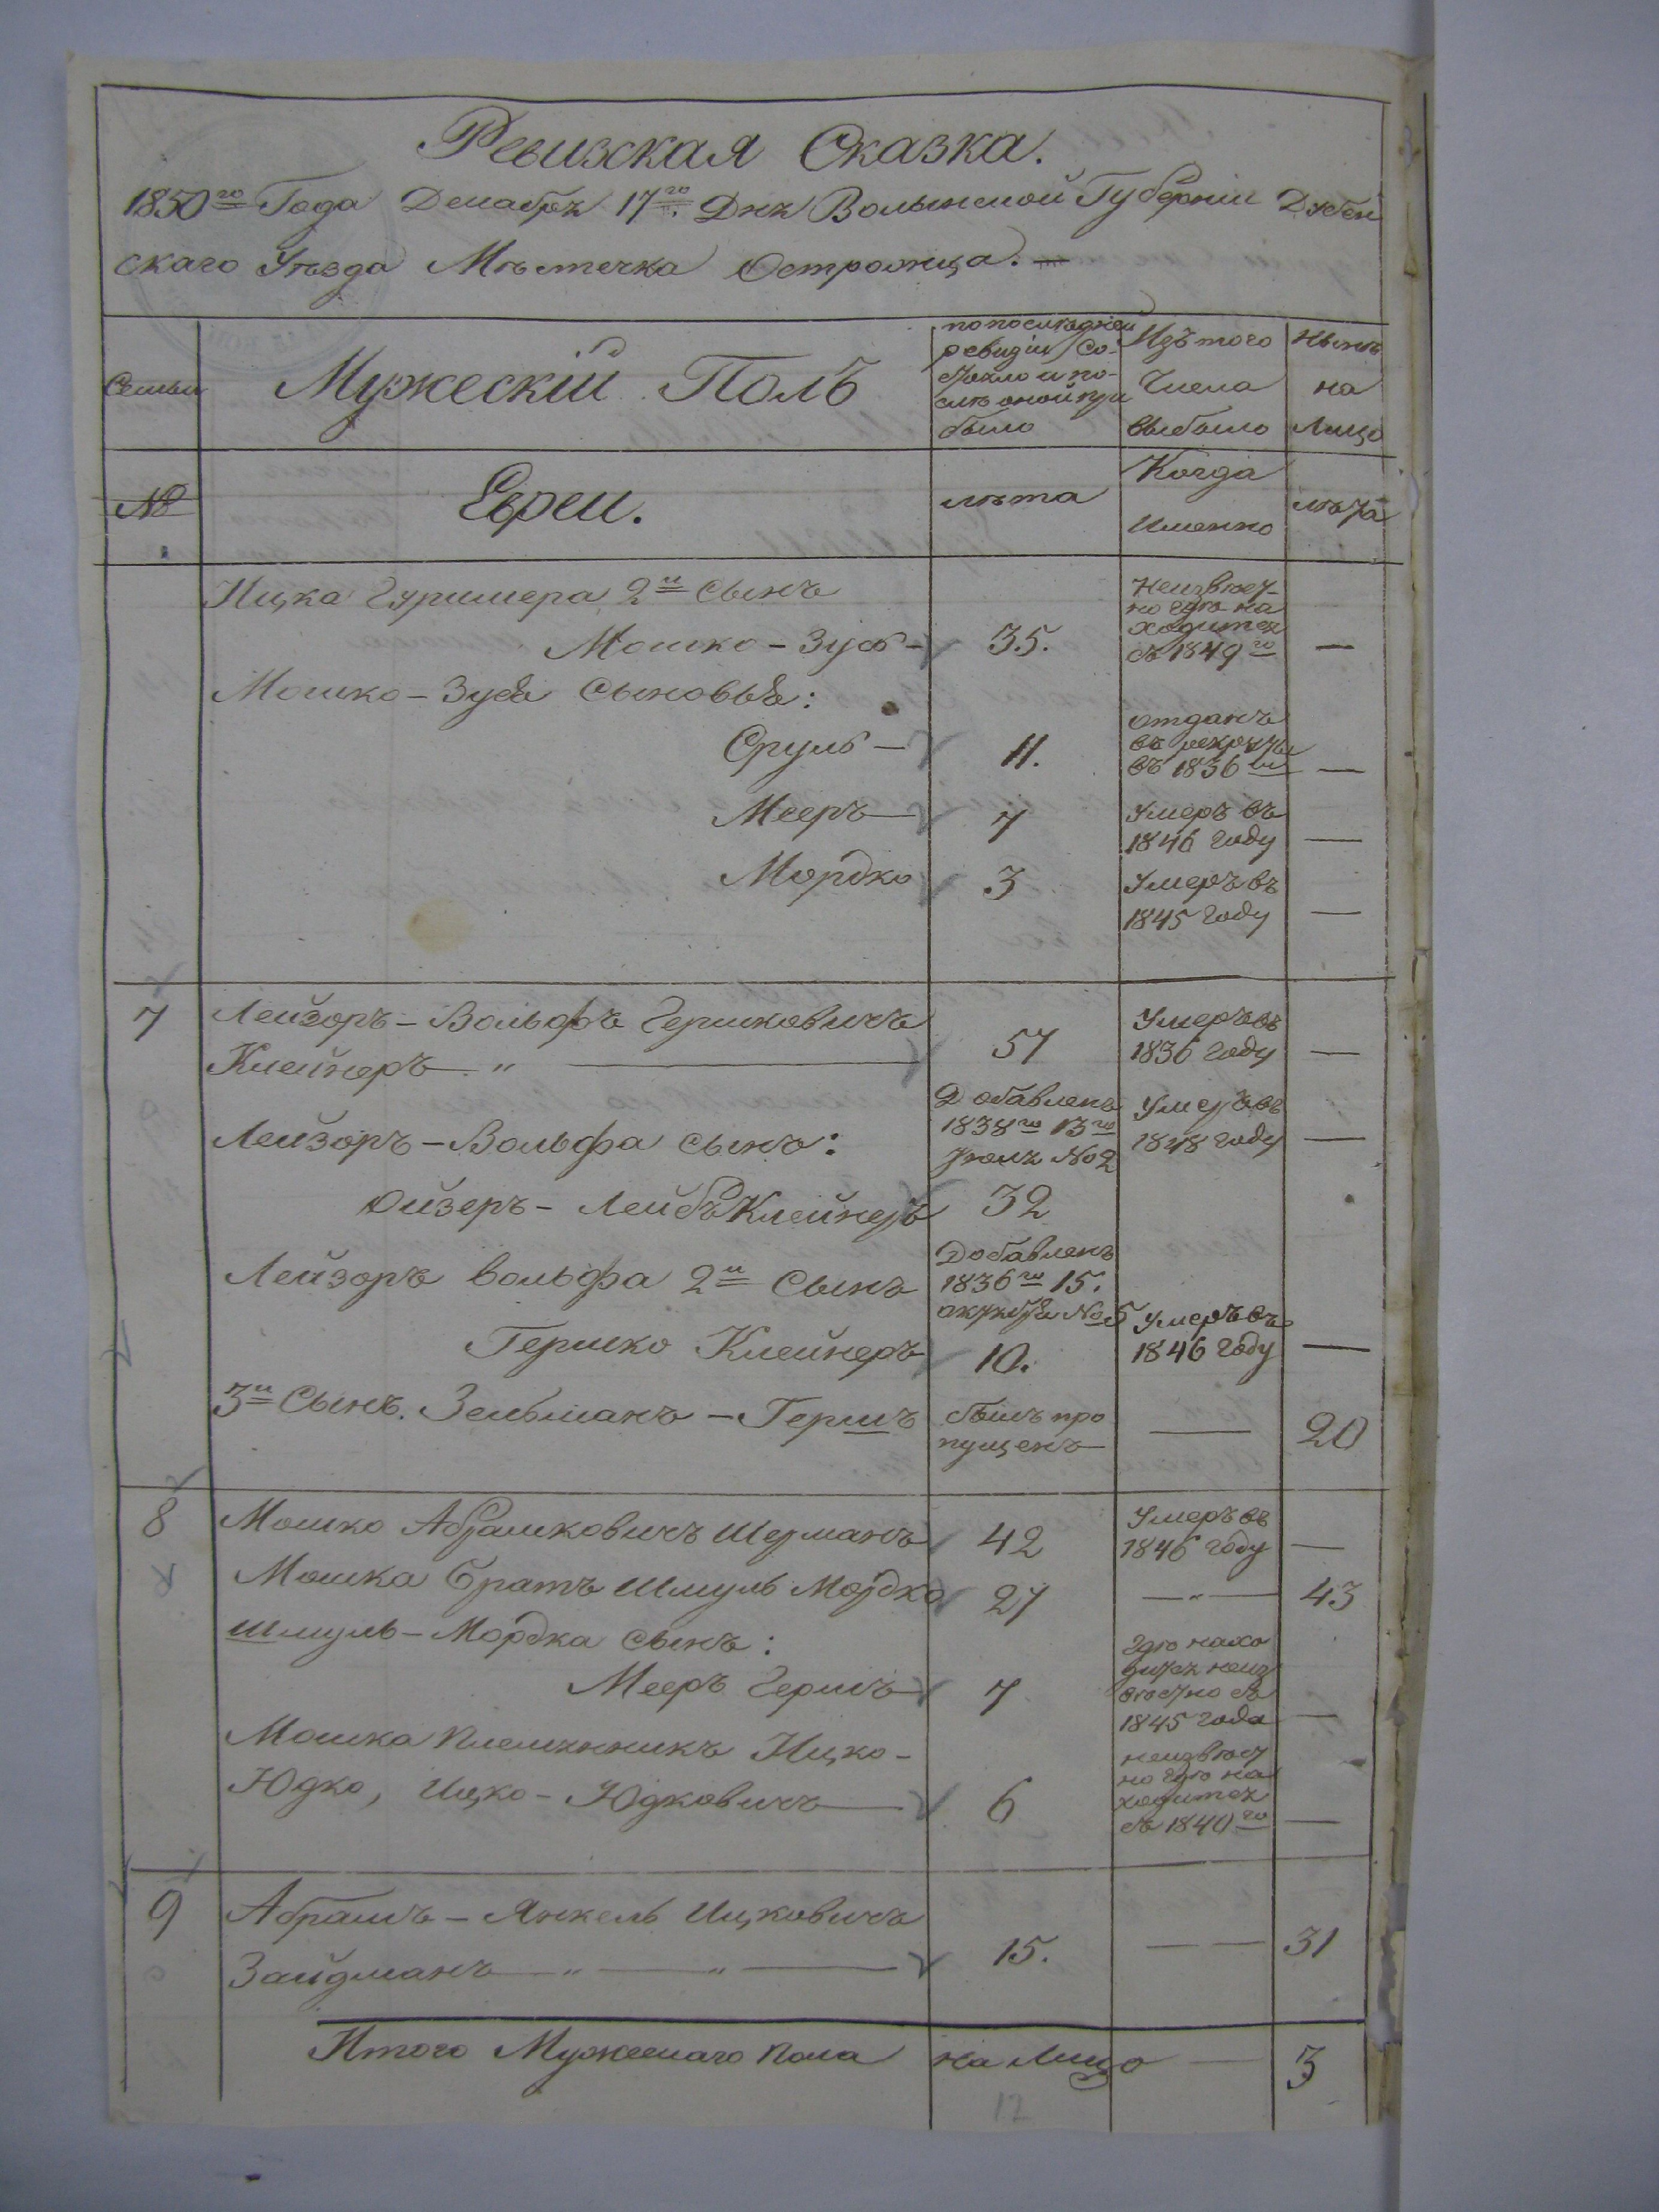 Ревизская Сказка.
1850го Года Декабря 17го Дня Волынской Губерніи Дубен
скаго Уѣзда Мѣстечка Острожца. —
Семьи
Мужескій Полъ
по послѣдней
ревизіи Со-
стояло и по-
слѣ оной при
было
Изъ того
Числа
выбыло
Нынѣ
на
Лицо
№
Евреи.
лѣта
Когда
Именно
лѣта
Ицка 2й Сынъ
Мошко – Зусь – 35. Неизвѣст-
но гдѣ на
ходится
съ 1849го —
Мошко – Зуся Сыновья:
Сруль – 11. отданъ
въ рекруты
въ 1836м —
Мееръ — 7 Умеръ въ
1846 году —
Мордко 3 Умеръ въ
1845 году —
7 Лейзоръ – Вольфъ Гершковичъ
Клейнеръ „ — 57 Умеръ въ
1836 году —
Лейзоръ – Вольфа сынъ:
Добавленъ
1838го 13го
Іюля № 2
Умеръ въ
1848 году —
Ойзеръ – Лейбъ Клейнеръ 32
Лейзоръ Вольфа 2й Сынъ
Добавленъ
1836го 15.
октября № 5
Гершко Клейнеръ 10. Умеръ въ
1846 году —
3й Сынъ. Зельманъ – Гершъ былъ про
пущенъ — 20
8 Мошко Абрамковичъ Шерманъ 42 Умеръ въ
1846 году —
Мошка братъ Шмуль Мордко 27 — „ — 43
Шмуль – Мордка сынъ:
Мееръ Гершъ — 7 гдѣ нахо
дится неиз
вѣстно съ
1845 года —
Мошка племянникъ Ицко –
Юдко, Ицко – Юдковичъ — 6 неизвѣст
но гдѣ на
ходится
съ 1840го —
9 Абрамъ – Янкель Ицковичъ
Зайдманъ — „ — „ — 15. — — 31
Итого Мужескаго пола на Лицо — 3
12